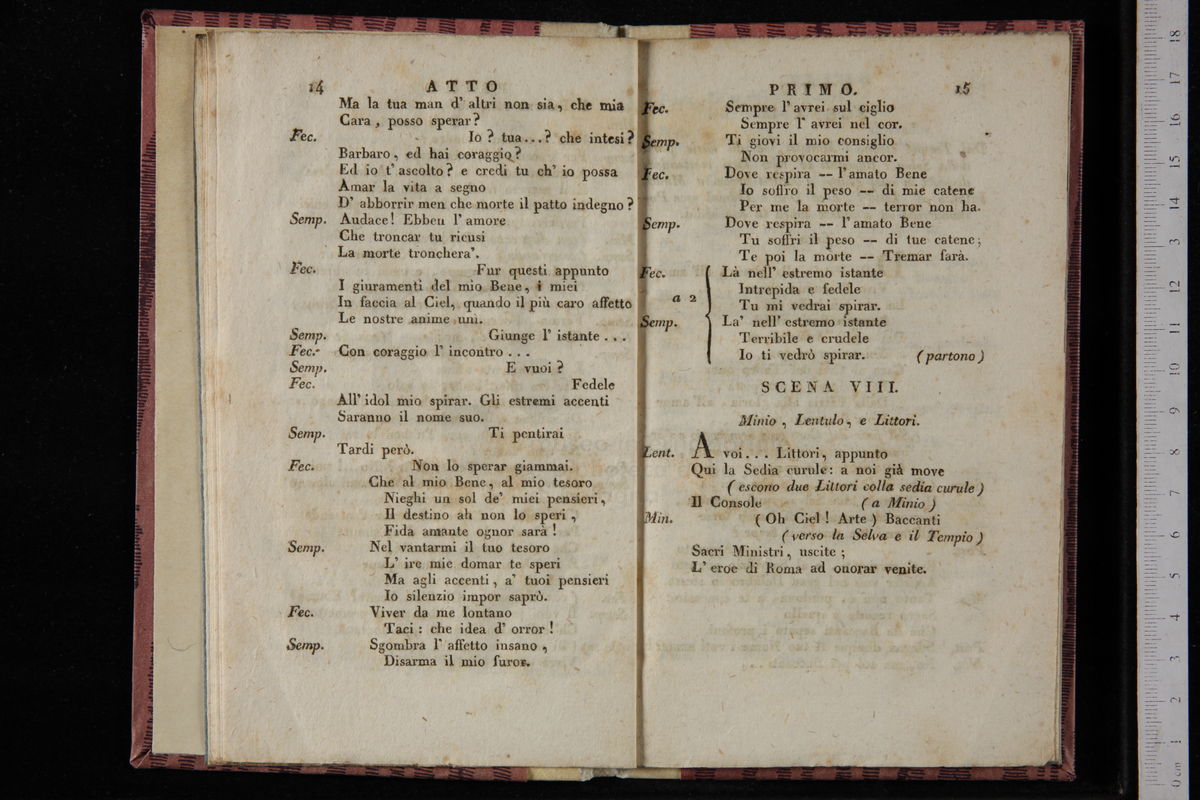 14 ATTO
Ma la tua man d' altri non sia, che mia
Cara, posso sperar?
Fec. Io? tua...? che intesi?
Barbaro, ed hai coraggio?
Ed io t' ascolto? e credi tu ch' io possa
Amar la vita a segno
D' abborrir men che morte il patto indegno?
Semp. Audace! Ebben l' amore
Che troncar tu ricusi
La morte troncherà'.
Fec. Fur questi appunto
I giuramenti del mio Bene, i miei
In faccia al Ciel, quando il più caro affetto
Le nostre anime unì.
Semp. Giunge l' istante...
Fec. Con coraggio l' incontro...
Semp. E vuoi?
Fec. Fedele
All' idol mio spirar. Gli estremi accenti
Saranno il nome suo.
Semp. Ti pentirai
Tardi però.
Fec. Non lo sperar giammai.
Che al mio Bene, al mio tesoro
Nieghi un sol de' miei pensieri,
Il destino ah non lo speri,
Fida amante ognor sarà!
Semp. Nel vantarmi il tuo tesoro
L' ire mie domar te speri
Ma agli accenti, a' tuoi pensieri
Io silenzio impor saprò.
Fec. Viver da me lontano
Taci: che idea d' orror!
Semp. Sgombra l' affetto insano,
Disarma il mio furor.
PRIMO. 15
Fec. Sempre l' avrei sul ciglio
Sempre l' avrei nel cor.
Semp. Ti giovi il mio consiglio
Non provocarmi ancor.
Fec. Dove respira — l' amato Bene
Io soffro il peso — di mie catene
Per me la morte — terror non ha.
Semp. Dove respira — l' amato Bene
Tu soffri il peso — di tue catene;
Te poi la morte — Tremar farà.
Fec. Là nell' estremo istante
Intrepida e fedele
a 2 Tu mi vedrai spirar.
Semp. La' nell' estremo istante
Terribile e crudele
Io ti vedrò spirar. (partono)
SCENA VIII.
Minio, Lentulo, e Littori.
Lent. A voi... Littori, appunto
Qui la Sedia curule: a noi già move
(escono due Littori colla sedia curule)
Il Console (a Minio)
Min. (Oh Ciel! Arte) Baccanti
(verso la Selva e il Tempio)
Sacri Ministri, uscite;
L' eroe di Roma ad onorar venite.
0 cm 1 2 3 4 5 6 7 8 9 10 11 12 13 14 15 16 17 18